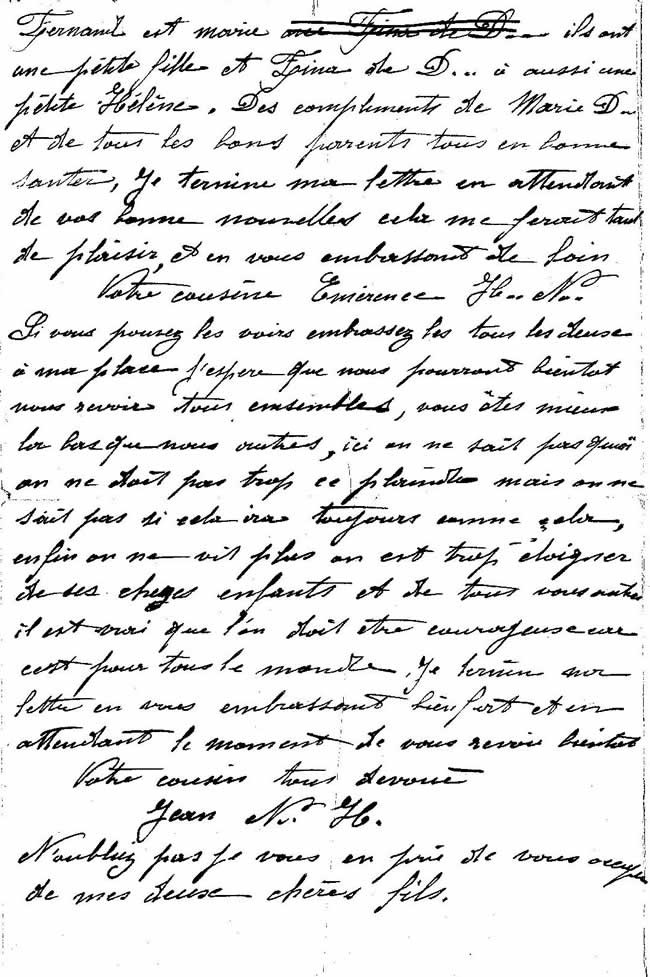 Fernand est marie avec Fina de D... ils ont
une pétite fille et Fina de D... à aussi une
pétite Hélène. Des compliments de Marie D..
et de tous les bons parents tous en bonne
santer, Je termine ma lettre en attendant
de vos bonne nouvelles cela me ferait tant
de plaisir, et en vous embrassant de loin
Votre cousine Emérence H.. N..
Si vous pouvez les voirs embrassez les tous les deuse
à ma plase j'espere que nous pourront bientot
nous revoir tous ensembles, vous êtes mieux
la bas que nous autres, ici on ne sait pas quoi
on ne doit pas trop ce plaindre mais on ne
sait pas si cela ira toujours comme cela,
enfin on ne vit plus on est trop éloigner
de ses cheres enfants et de tous vous autres
il est vrai que l'on doit etre courageuse car
cest pour tous le monde. Je termine ma
lettre en vous embrassant bien fort et en
attendant le moment de vous revoir bientot
Votre cousin tous devoué
Jean N. H.
N'oubliez pas je vous en prie de vous occuper
de mes deuse chères fils.